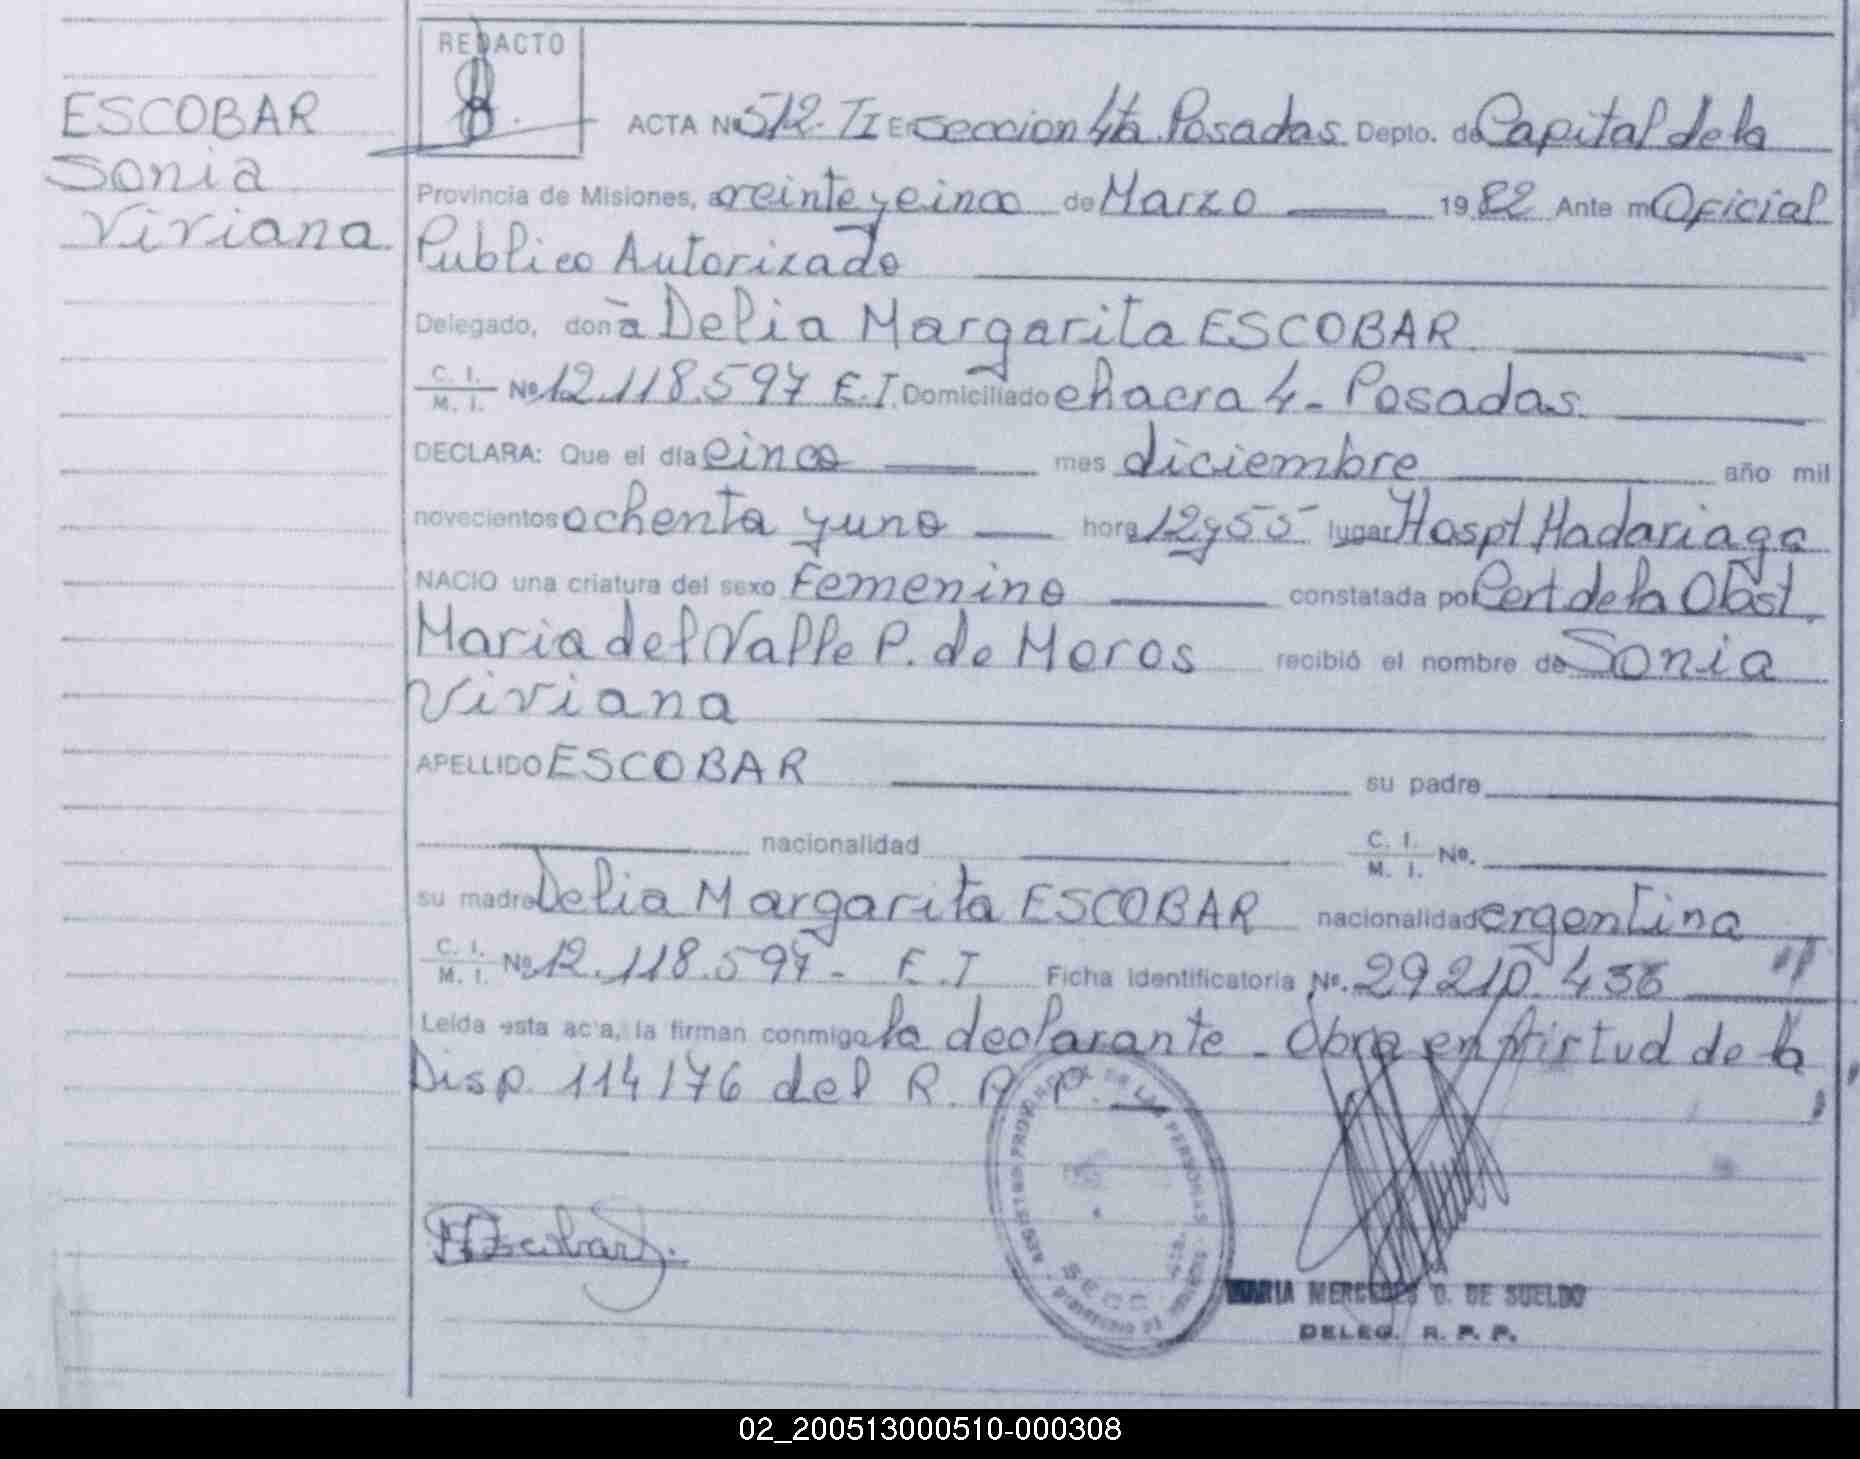 ESCOBAR
Sonia
Viviana
REDACTO
ACTA Nº 512. TI En Seccion 4ta Posadas. Depto. de Capital de la
Provincia de Misiones, a veinte y cinco de Marzo 1982 Ante mi Oficial
Publico Autorizado
Delegado, don a Delia Margarita ESCOBAR
C. I. M. I. Nº 12.118.597 E.I. Domiciliado chacra 4 - Posadas.
DECLARA: Que el día cinco mes diciembre año mil
novecientos ochenta y uno hora 12 y 55 lugar Hospt Madariaga
NACIO una criatura del sexo Femenino constatada por Cert de la Obst.
Maria del Valle P. de Moros recibió el nombre de Sonia
Viviana
APELLIDO ESCOBAR su padre
nacionalidad C. I. M. I. Nº.
su madre Delia Margarita ESCOBAR nacionalidad argentina
C. I. M. I. Nº 12.118.597 - E.I Ficha identificatoria Nº. 29210 436
Leída esta acta, la firman conmigo la declarante - Obra en Virtud de la
Disp. 114/76 del R. P. P.
REGISTRO PROVINCIAL DE LAS PERSONAS
SECC. 4ta.
MARIA MERCEDES O. DE SUELDO
DELEG. R. P. P.
02_200513000510-000308